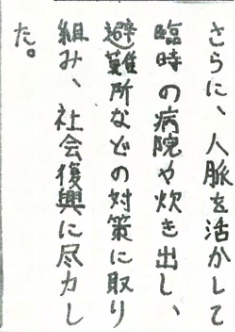 さらに、人脈を活かして
臨時の病院や炊き出し、
避難所などの対策に取り
組み、社会復興に尽力し
た。